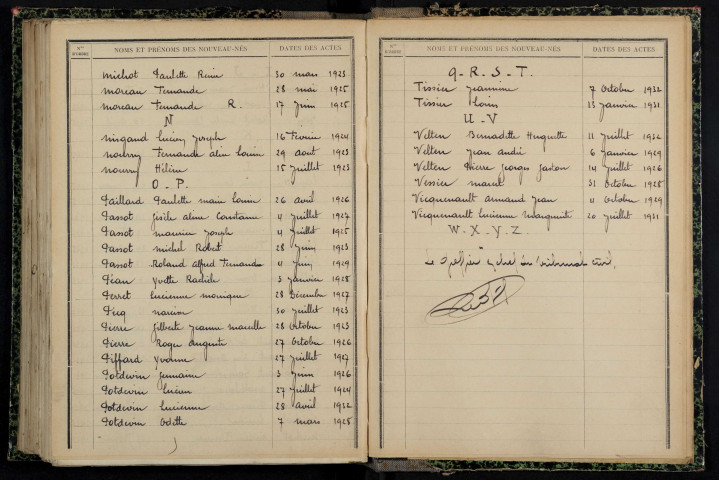 Nos D'ORDRE NOMS ET PRÉNOMS DES NOUVEAU-NÉS DATES DES ACTES
Michot Paulette Reine 30 mars 1923
Moreau Fernande 28 mai 1925
Moreau Fernande R. 17 Juin 1925
N
Ningand Lucien Joseph 16 Février 1924
Nourry Fernande Aline Louise 29 août 1923
Nourry Hélène 15 Juillet 1923
O_P.
Paillard Paulette Marie Louise 26 avril 1926
Passot Gisèle Aline Constance 4 Juillet 1927
Passot Maurice Joseph 4 Juillet 1925
Passot Michel Robert 28 Juin 1923
Passot Roland Alfred Fernand 4 Juin 1929
Péan Yvette Rachèle 3 Janvier 1928
Perret Lucienne Monique 28 Décembre 1927
Picq Narcisse 30 Juillet 1923
Pierre Gilberte Jeanne Marcelle 28 Octobre 1923
Pierre Roger Auguste 27 Octobre 1926
Piffard Yvonne 27 Juillet 1927
Potdevin Germaine 3 Juin 1926
Potdevin Lucien 27 Juillet 1924
Potdevin Lucienne 28 avril 1932
Potdevin Odette 7 mars 1925
Nos D'ORDRE NOMS ET PRÉNOMS DES NOUVEAU-NÉS DATES DES ACTES
Q_R_S_T.
Tissier Jeannine 7 Octobre 1932
Tissier 13 Janvier 1931
U_V
Velten Bernadette Huguette 11 Juillet 1932
Velten Jean André 6 Janvier 1929
Velten Pierre Georges Gaston 14 Juillet 1926
Vessier Marcel 31 Octobre 1928
Vicquenault Armand Jean 11 Octobre 1929
Vicquenault Lucienne Marguerite 20 Juillet 1931
W_X_Y_Z.
Le Greffier du Tribunal civil,